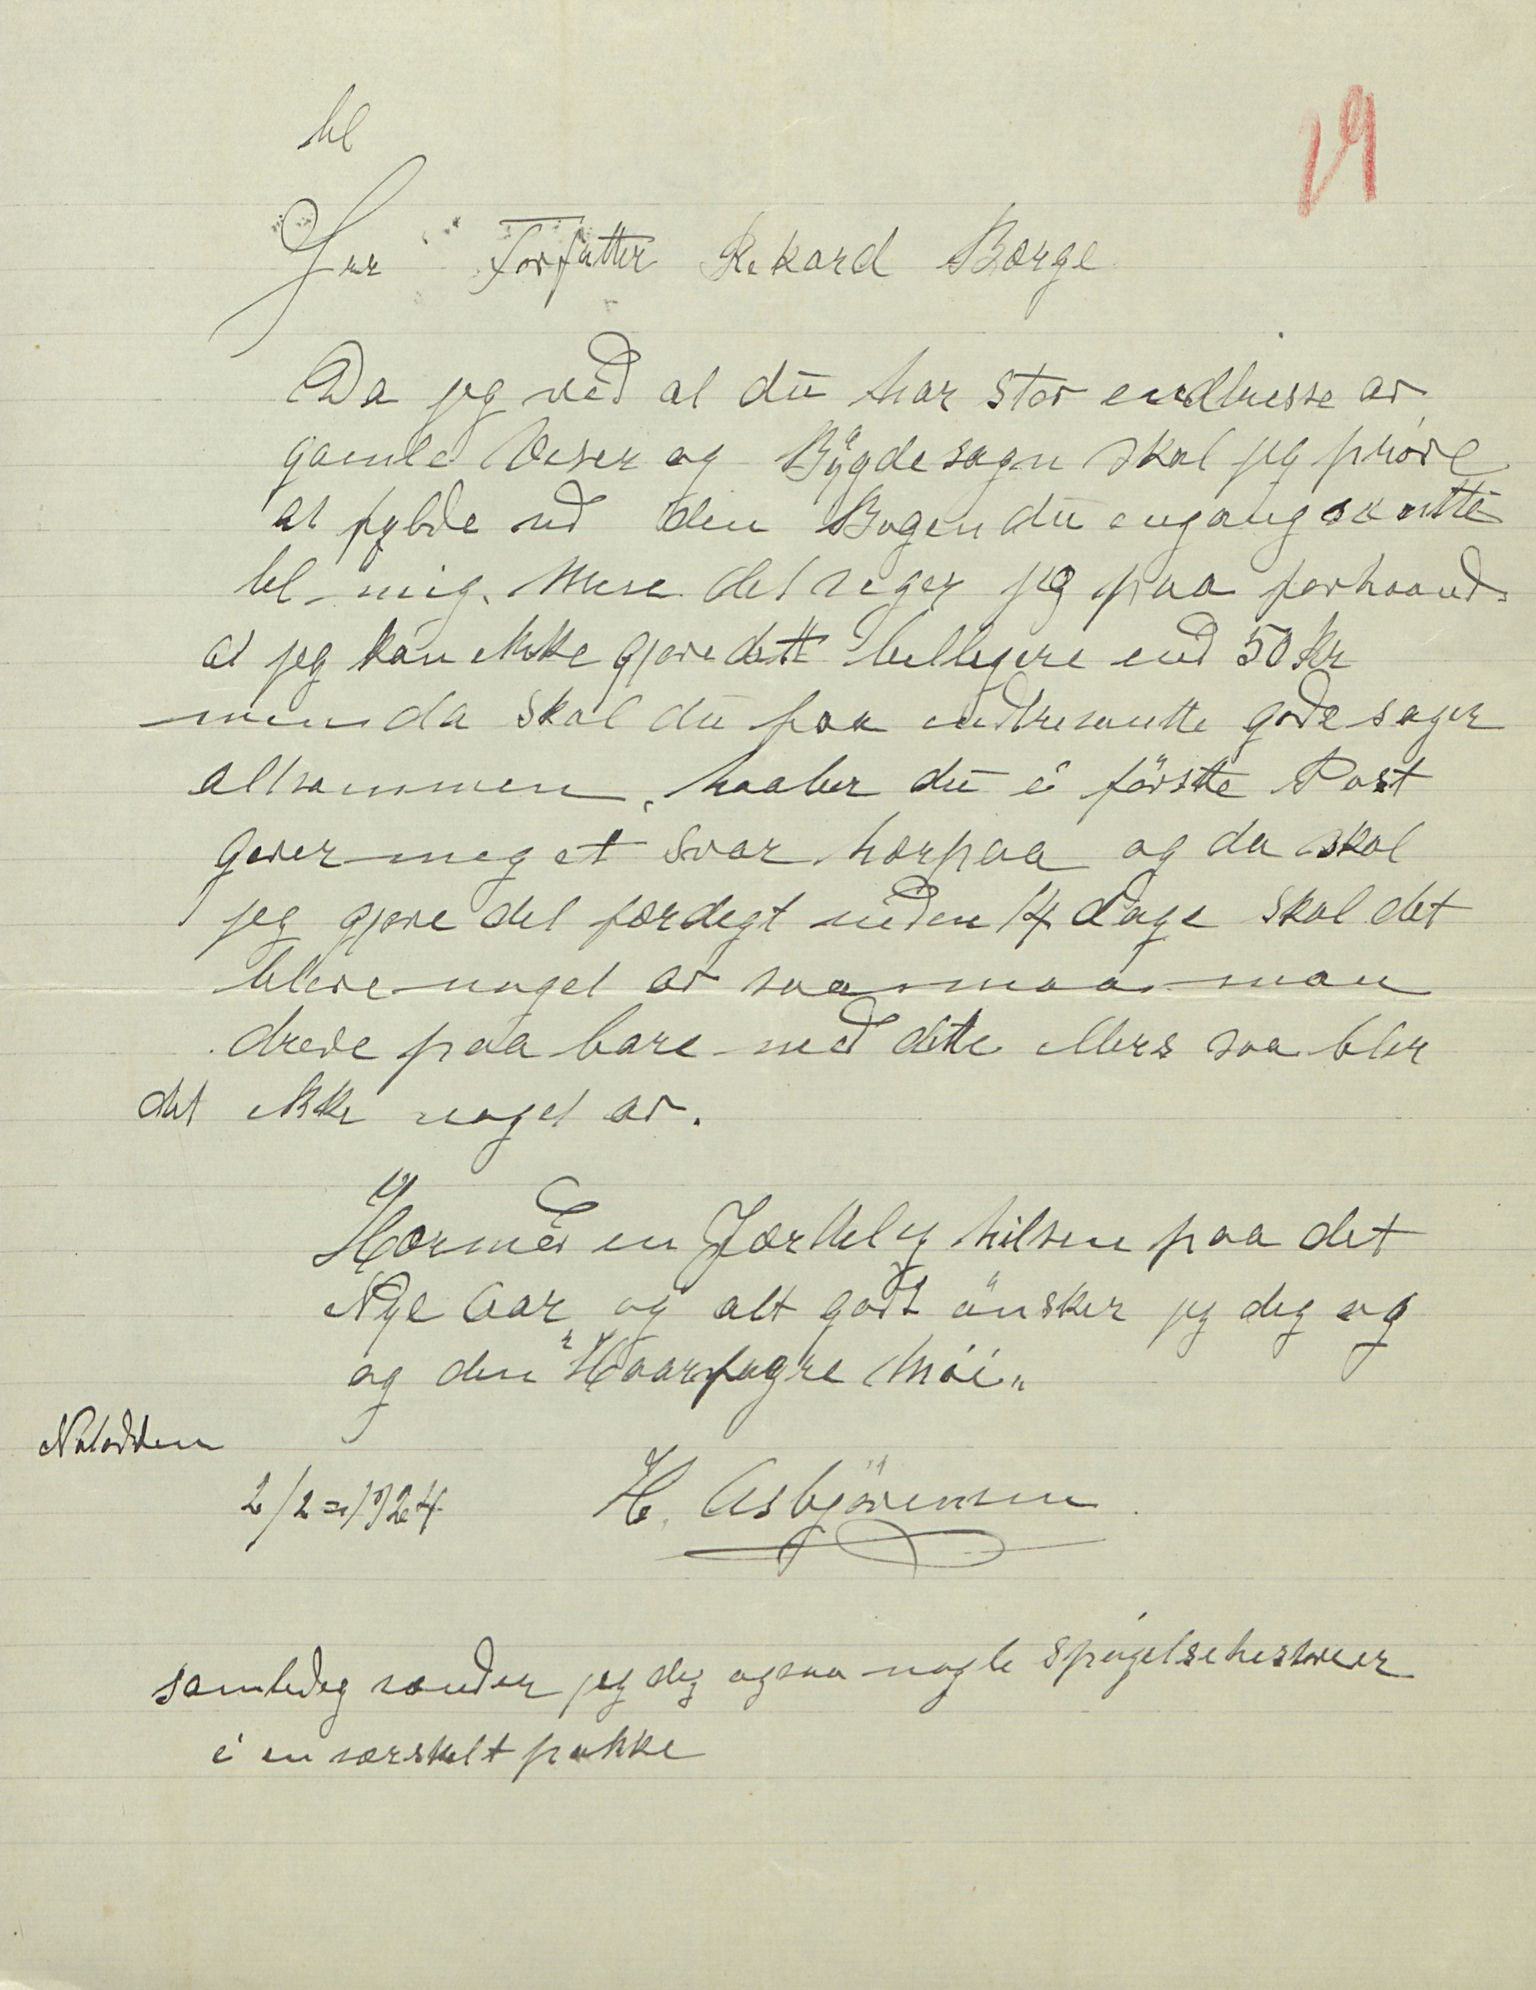 19
til
Herr Forfatter Rikard Berge
Da jeg ved at du har stor endtresse av
gamle Viser og Bygdesagn skal jeg prøve
at fylde ud den Bogen du engang sentte
til mig. Men det siger jeg paa forhaand
at jeg kan ikke gjøre dett billigere end 50 Kr
men da skal du faa entresantte gode sager
altsammen, haaber du i første Post
giver mig et svar herpaa og da skal
jeg gjøre det færdigt inden 14 Dage skal det
blive noget av saa maa man
drive paa bare med dette ellers saa blir
det ikke noget av.
Hermed en Hjærtelig hilsen paa det
Nye Aar og alt godt ønsker jeg dig og
og den "Haarfagre Møi"
Notodden
2/2=1924 H. Asbjørnsen
samtidig sender jeg dig ogsaa nogle spøgelsehistorier
i en særskelt pakke